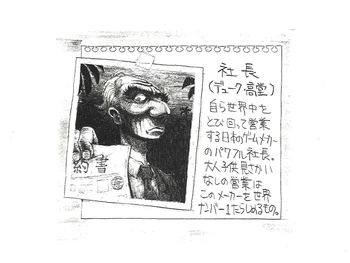 約書
社長
(デューク・高堂)
自ら世界中を
とび回って営業
する日本のゲームメーカー
のパワフル社長。
大人子供見さかい
なしの営業は
このメーカーを世界
ナンバー1たらしめるもの。